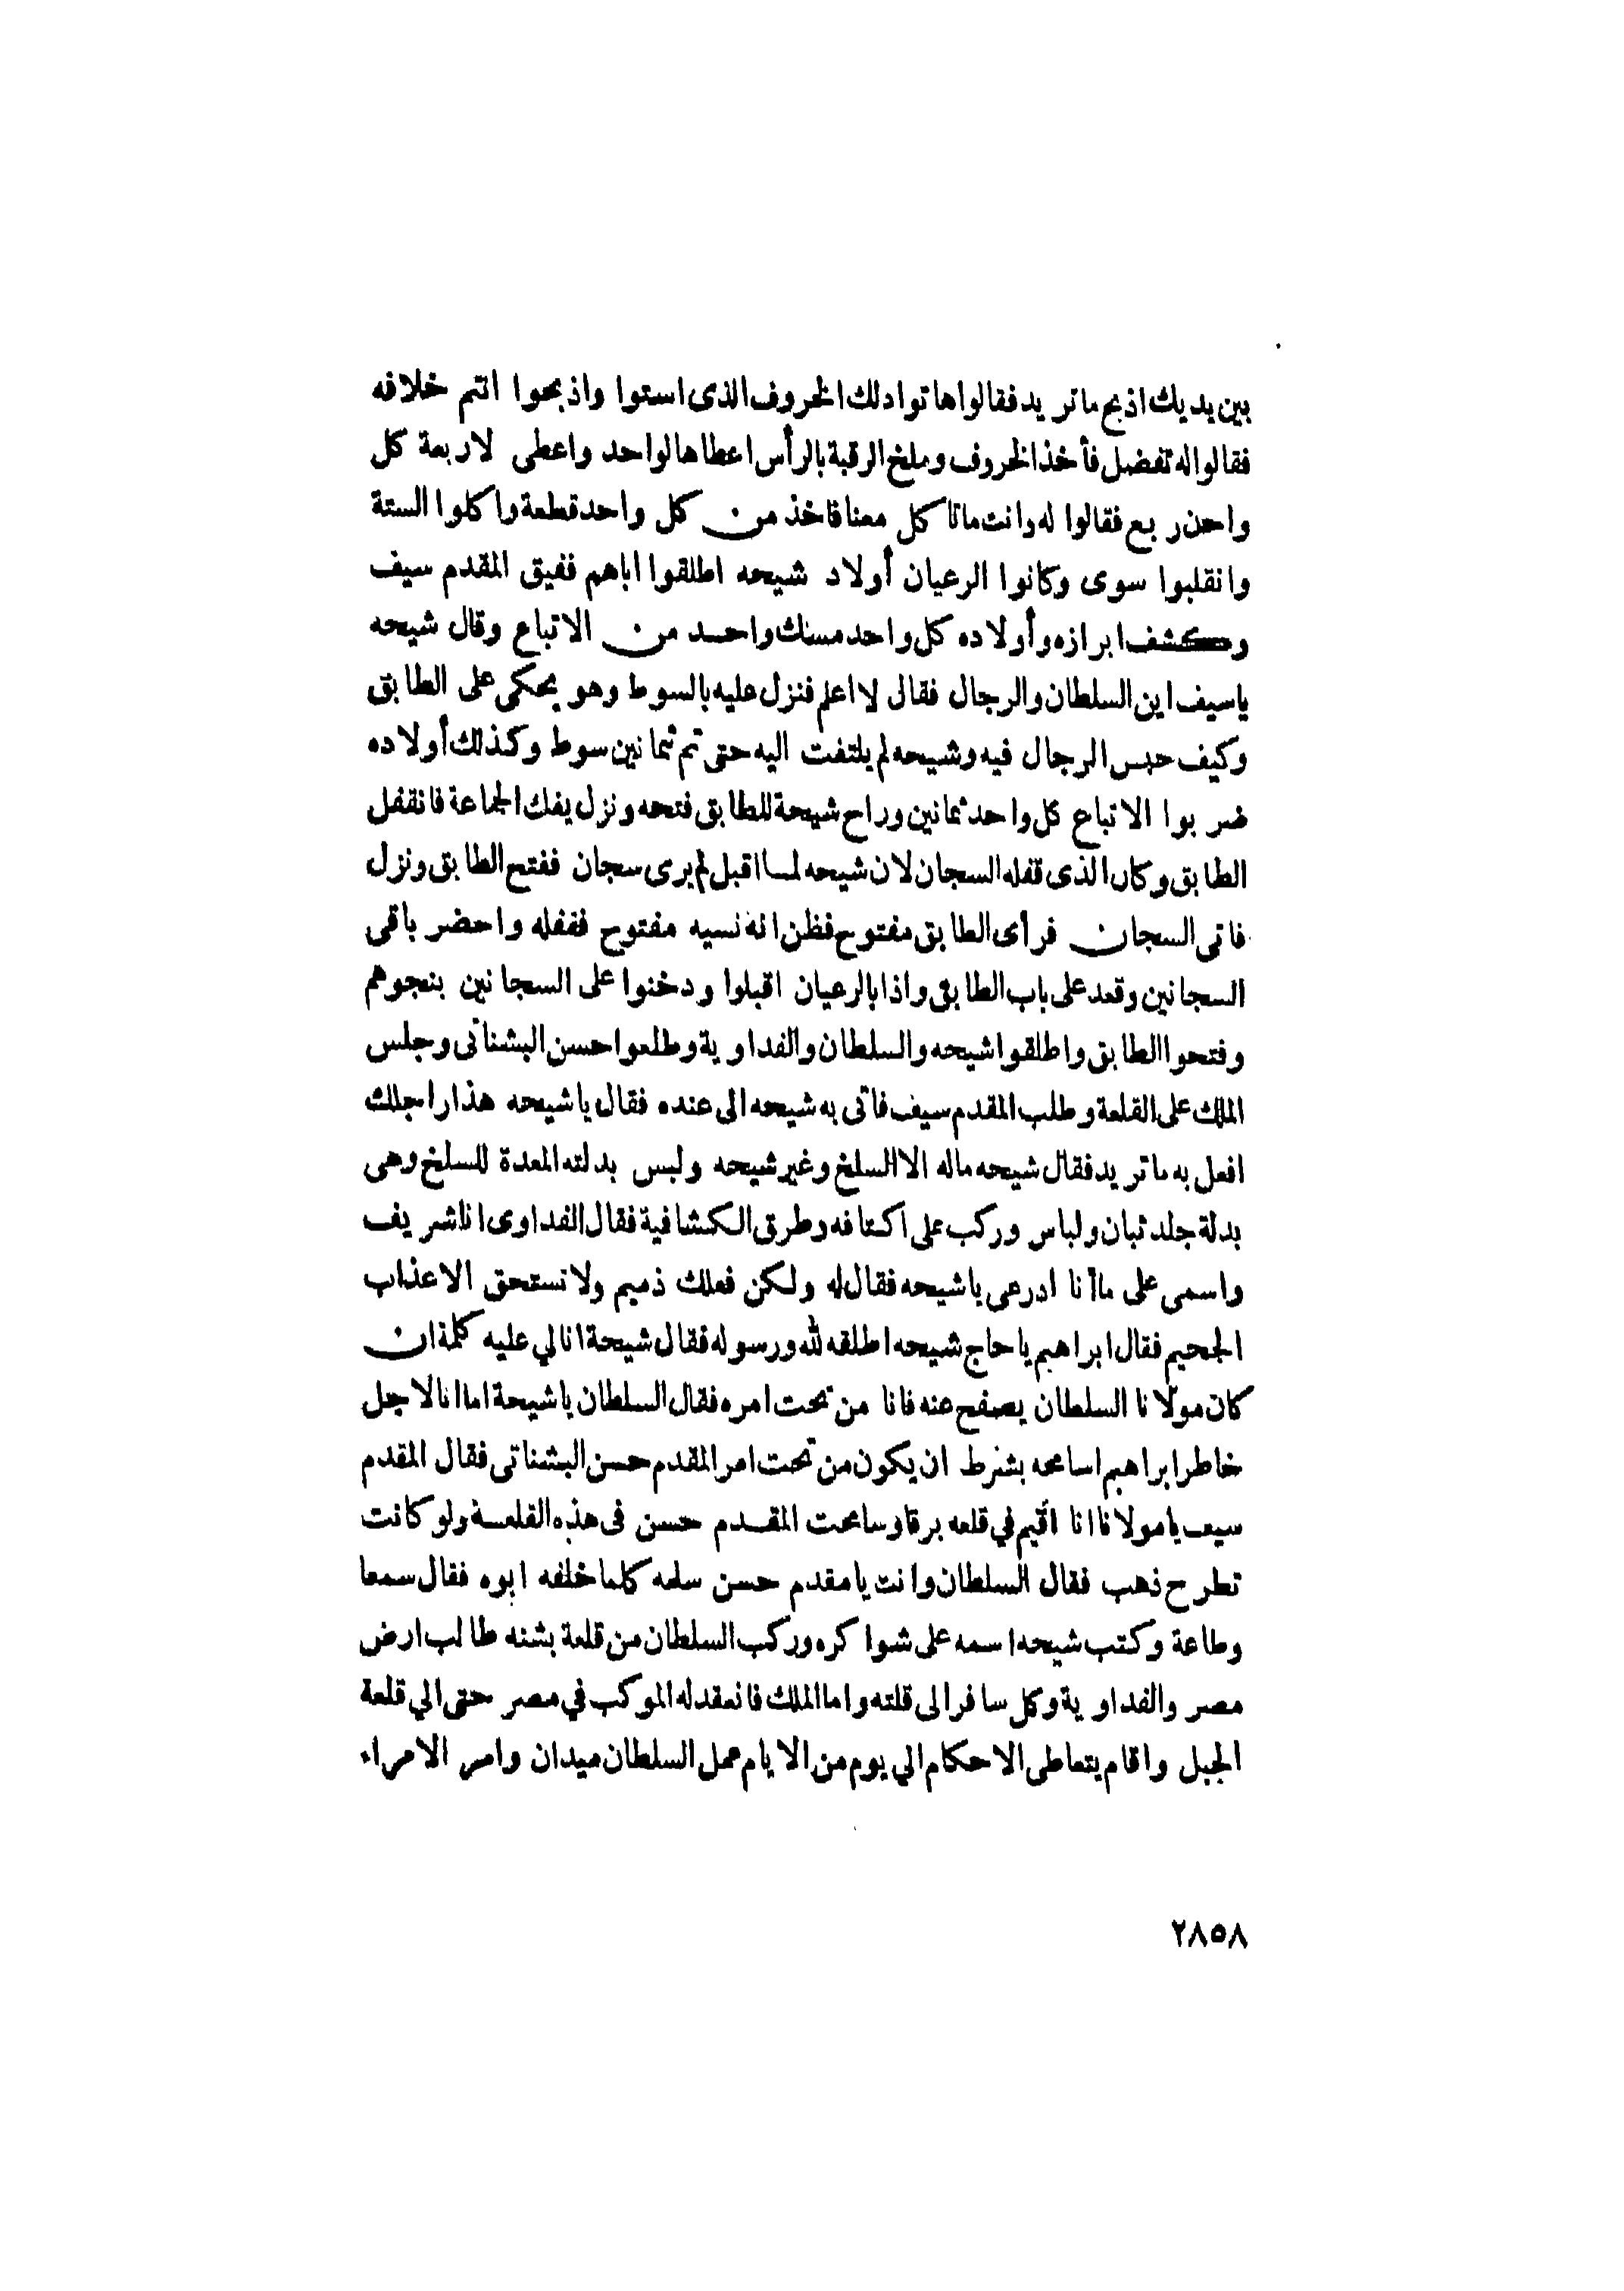 بين يديك اذبح ما تريد فقالوا هاتوا دلك الخروف الذى استوا واذبحوا انتم خلافه
فقالوا له تفضل فأخذ الخروف وملخ الرقبة بالرأس اعطاها لواحد واعطى لاربعة كل
واحد ربع فقالوا له وانت ماتاكل معنا فاخذ من كل واحد قطعة واكلوا الستة
وانقلبوا سوى وكانوا الرعيان أولاد شيحه اطلقوا اباهم ففيق المقدم سيف
وكشف ابرازه وأولاده كل واحد مسك واحد من الاتباع وقال شيحه
ياسيف اين السلطان والرجال فقال لا اعلم فنزل عليه بالسوط وهو يحكى على الطابق
وكيف حبس الرجال فيه وشيحه لم يلتفت اليه حتى تم ثمانين سوط وكذلك أولاده
ضربوا الاتباع كل واحد ثمانين وراح شيحة للطابق فتحه ونزل يفك الجماعة فانقفل
الطابق وكان الذى قفله السجان لان شيحه لما اقبل لم يرى سجان ففتح الطابق ونزل
فاتى السجان فرأى الطابق مفتوح فظن انه نسيه مفتوح فقفله واحضر باقى
السجانين وقعد على باب الطابق واذا بالرعيان اقبلوا ودخنوا على السجانين بنجوهم
وفتحوا الطابق واطلقوا شيحه والسلطان والفداوية وطلعوا حسن البشناتى وجلس
الملك على القلعة وطلب المقدم سيف فاتى به شيحه الى عنده فقال ياشيحه هذا راجلك
افعل به ما تريد فقال شيحه ماله الا السلخ وغير شيحه ولبس بدلته المعدة للسلخ وهى
بدلة جلد ثبان ولباس وركب على اكتافه وطرق الكشافية فقال الفداوى انا شريف
واسمى على ماأنا ادرعى ياشيحه فقال له ولكن فعلك ذميم ولا تستحق الا عذاب
الجحيم فقال ابراهيم ياحاج شيحه اطلقه لله ورسوله فقال شيحة انا لي عليه كلمة ان
كان مولانا السلطان يصفح عنه فانا من تحت امره فقال السلطان ياشيحة اما انا لاجل
خاطر ابراهيم اسامحه بشرط ان يكون من تحت امر المقدم حسن البشناتى فقال المقدم
سيف يا مولانا انا اقيم في قلعه برقا وسامحت المقدم حسن فى هذه القلعة ولو كانت
تطرح ذهب فقال السلطان وانت يامقدم حسن سلمه كلما خلفه ابوه فقال سمعا
وطاعة وكتب شيحه اسمه على شواكره وركب السلطان من قلعة بشنه طالب ارض
مصر والفداوية وكل سافر الى قلته واما الملك فانعقد له الموكب في مصر حتى الي قلعة
الجبل واقام يتعاطى الاحكام الي يوم من الايام عمل السلطان ميدان وامر الامراء
٢٨٥٨